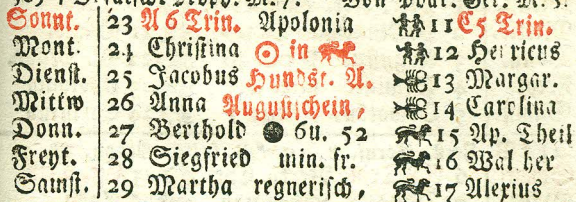 Sonnt. 23 A 6 Trin. Apolonia 11 E 5 Trin.
Mont. 24 Christina ☉ in ♌ 12 Henricus
Dienst. 25 Jacobus Hundst. A. 13 Margar.
Mittw 26 Anna Augustschein, 14 Carolina
Donn. 27 Berthold ● 6u. 52 15 Ap. Theil
Freyt. 28 Siegfried min. fr. 16 Walther
Samst. 29 Martha regnerisch, 17 Alexius